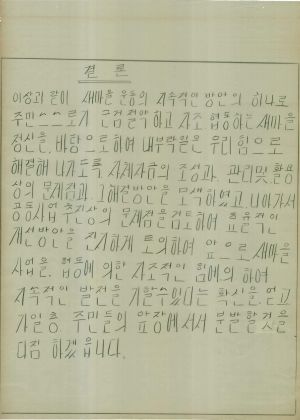 결 론
이상과 같이 새마을 운동의 지속적인 방안의 하나로
주민 스스로가 근검절약하고 자조 협동하는 새마을
정신을 바탕으로하여 내부락일은 우리 힘으로
해결해 나가도록 자체자금의 조성과 관리및 활용
상의 문제점과 그해결방안을 모색하였고 나아가서
공동사업 추진상의 문제점을 검토하여 효율적인
개선방안을 진지하게 토의하여 앞으로 새마을
사업을 협동에 의한 자조적인 힘에의 하여
지속적인 발전을 기할수있다는 확신을 얻고
가일층 주민들의 앞장에 서서 분발할것을
다짐 하겠읍니다.